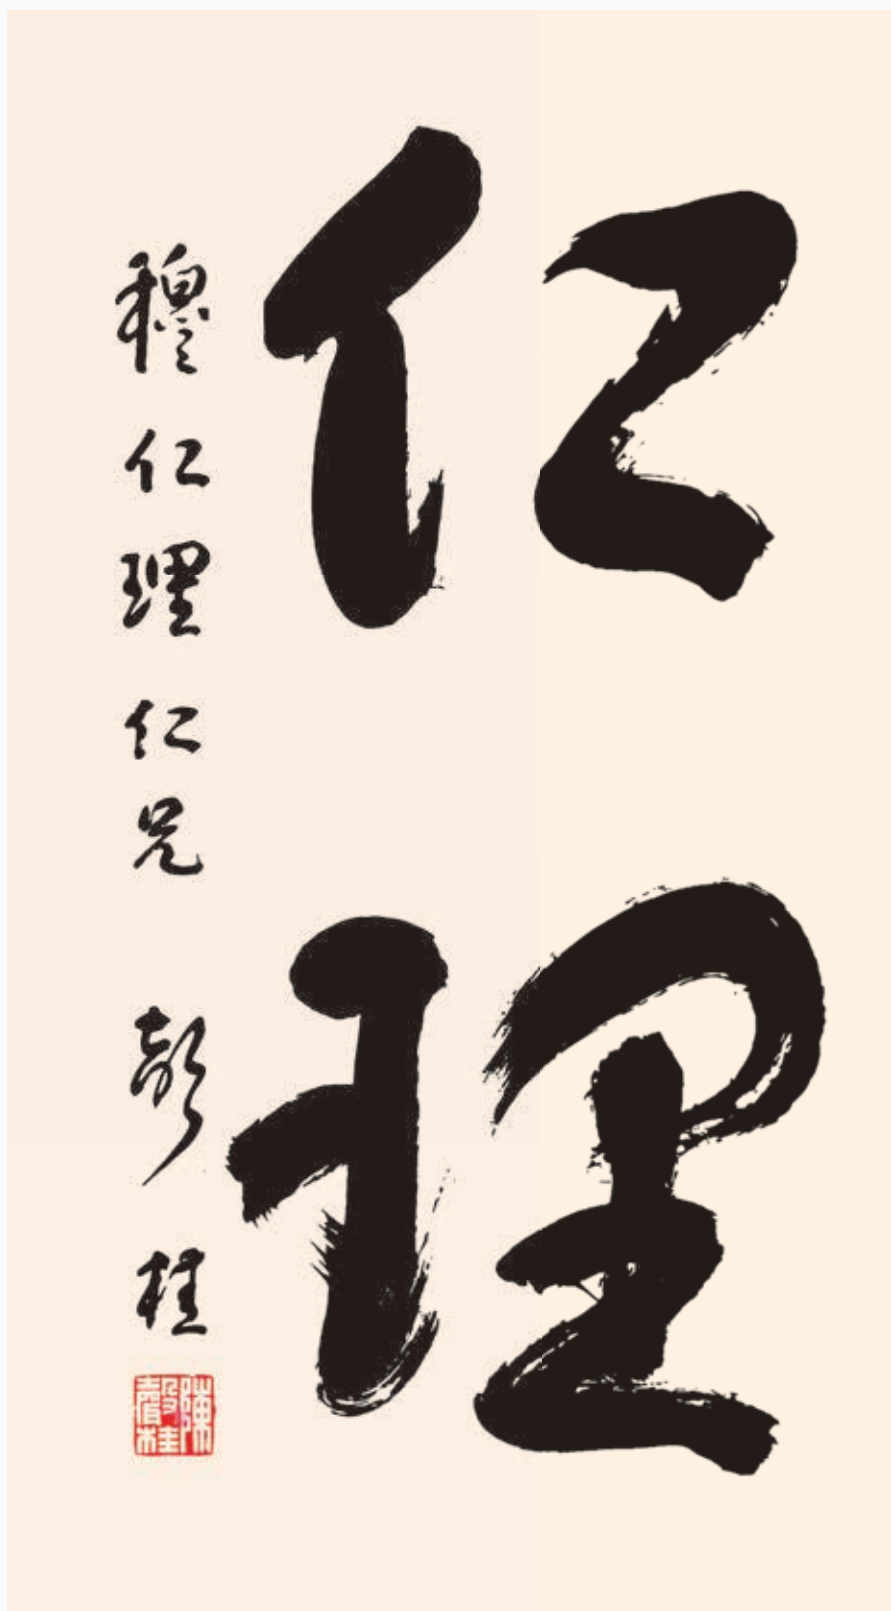 仁理
穆仁理仁兄 聲桂
陳聲桂